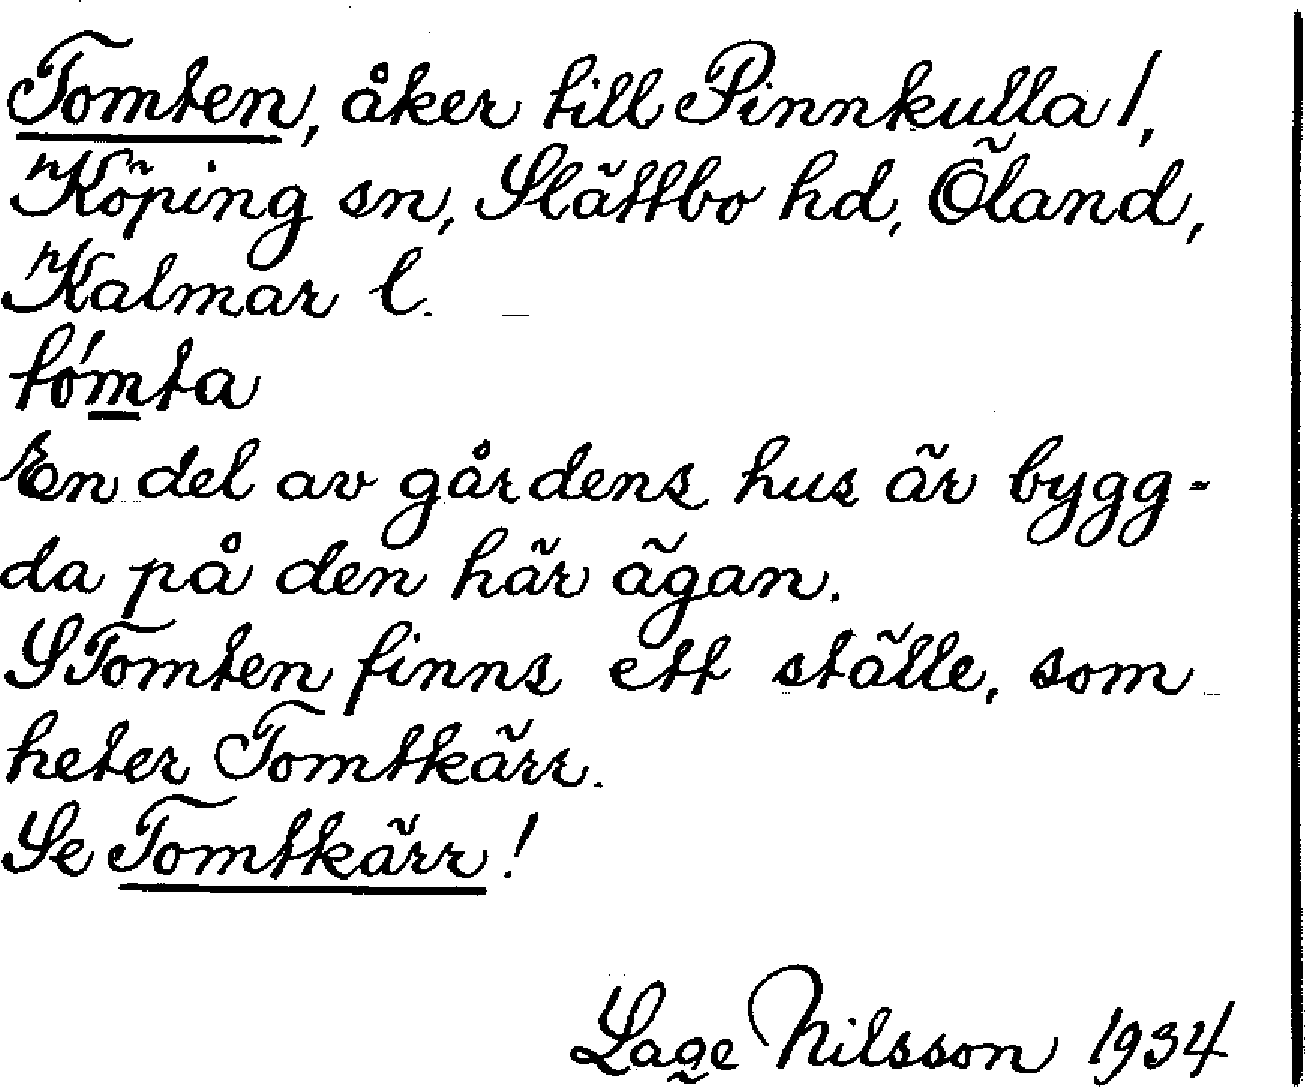 Tomten, åker till Pinnkulla 1,
Köping sn, Slättbo hd, Öland,
Kalmar l.
tómta
En del av gårdens hus är bygg-
da på den här ägan.
S Tomten finns ett ställe, som
heter Tomtkärr.
Se Tomtkärr!
Lage Nilsson 1934